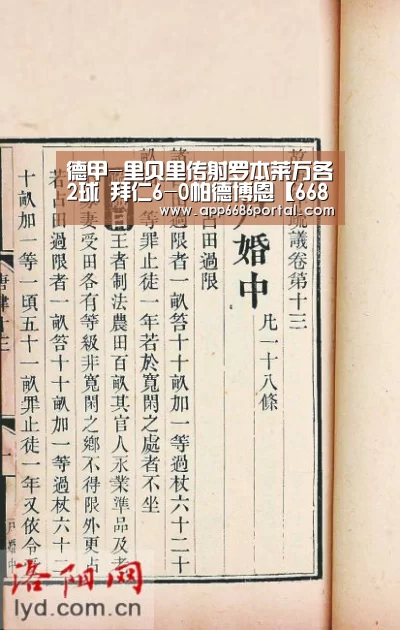 德甲-里贝里传射罗本莱万各
2球 拜仁6-0帕德博恩【668
www.app6686portal.com
故
疏議卷第十三
婚中
凡一十八條
占田過限
諸
過限者一畝笞十十畝加一等過杖六十二十
畝加一等罪止徒一年若於寬閑之處者不坐
疏
曰王者制法農田百畝其官人永業準品及老
妻受田各有等級非寬閑之鄉不得限外更占
若占田過限者一畝笞十十畝加一等過杖六十二
十畝加一等一頃五十一畝罪止徒一年又依令
唐律
戶婚中
洛阳网
lyd.com.cn